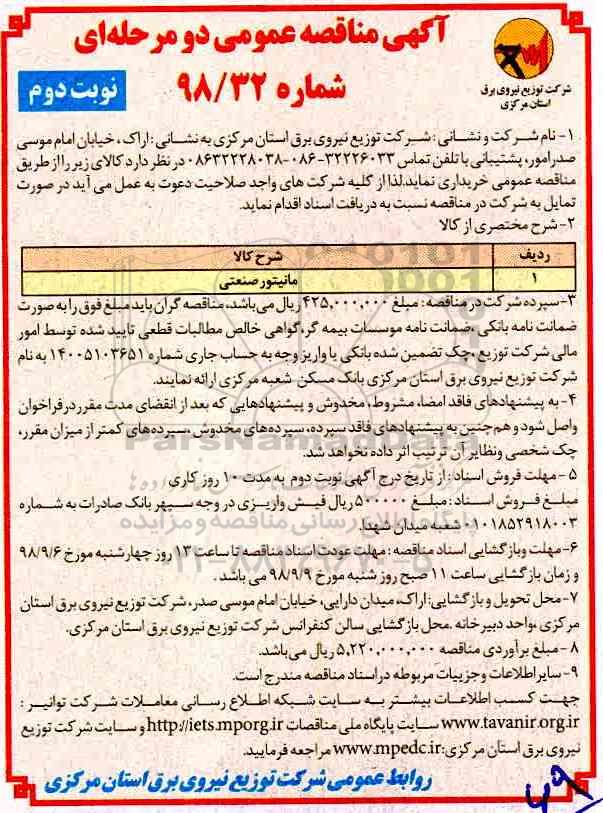 آگهی مناقصه عمومی دو مرحله‌ای
شماره ۹۸/۳۲
نوبت دوم
شرکت توزیع نیروی برق
استان مرکزی
۱- نام شرکت و نشانی : شرکت توزیع نیروی برق استان مرکزی به نشانی : اراک ، خیابان امام موسی
صدر امور، پشتیبانی با تلفن تماس ۳۲۲۲۶۰۳۳-۰۸۶-۰۸۶۳۲۲۲۸۰۳۸ در نظر دارد کالای زیر را از طریق
مناقصه عمومی خریداری نماید.لذا از کلیه شرکت های واجد صلاحیت دعوت به عمل می آید در صورت
تمایل به شرکت در مناقصه نسبت به دریافت اسناد اقدام نماید.
۲- شرح مختصری از کالا
ردیف شرح کالا
۱ مانیتور صنعتی
۳- سپرده شرکت در مناقصه : مبلغ ۴۲۵,۰۰۰,۰۰۰ ریال می‌باشد، مناقصه گران باید مبلغ فوق را به صورت
ضمانت نامه بانکی ،ضمانت نامه موسسات بیمه گر، گواهی خالص مطالبات قطعی تایید شده توسط امور
مالی شرکت توزیع ،چک تضمین شده بانکی یا واریز وجه به حساب جاری شماره ۱۴۰۰۵۱۰۳۶۵۱ به نام
شرکت توزیع نیروی برق استان مرکزی بانک مسکن شعبه مرکزی ارائه نمایند.
۴- به پیشنهادهای فاقد امضا، مشروط ، مخدوش و پیشنهادهایی که بعد از انقضای مدت مقرر در فراخوان
واصل شود و هم‌چنین به پیشنهادهای فاقد سپرده، سپرده‌های مخدوش ،سپرده‌های کمتر از میزان مقرر،
چک شخصی ونظایر آن ترتیب اثر داده نخواهد شد.
۵- مهلت فروش اسناد : از تاریخ درج آگهی نوبت دوم به مدت ۱۰ روز کاری
مبلغ فروش اسناد : مبلغ ۵۰۰۰۰۰ ریال فیش واریزی در وجه سپهر بانک صادرات به شماره
۰۱۰۱۸۵۲۹۱۸۰۰۳ شعبه میدان شهدا.
۶- مهلت وبازگشایی اسناد مناقصه : مهلت عودت اسناد مناقصه تا ساعت ۱۳ روز چهارشنبه مورخ ۹۸/۹/۶
و زمان بازگشایی ساعت ۱۱ صبح روز شنبه مورخ ۹۸/۹/۹ می باشد .
۷- محل تحویل و بازگشایی: اراک، میدان دارایی، خیابان امام موسی صدر، شرکت توزیع نیروی برق استان
مرکزی ،واحد دبیرخانه .محل بازگشایی سالن کنفرانس شرکت توزیع نیروی برق استان مرکزی.
۸- مبلغ برآوردی مناقصه ۵,۲۲۰,۰۰۰,۰۰۰ ریال می‌باشد.
۹- سایر اطلاعات وجزییات مربوطه در اسناد مناقصه مندرج است.
جهت کسب اطلاعات بیشتر به سایت شبکه اطلاع رسانی معاملات شرکت توانیر :
www.tavanir.org.ir سایت پایگاه ملی مناقصات http://iets.mporg.ir و سایت شرکت توزیع
نیروی برق استان مرکزی: www.mpedc.ir مراجعه فرمایید.
روابط عمومی شرکت توزیع نیروی برق استان مرکزی
ParsNamadData
پایگاه اطلاع رسانی مناقصه و مزایده